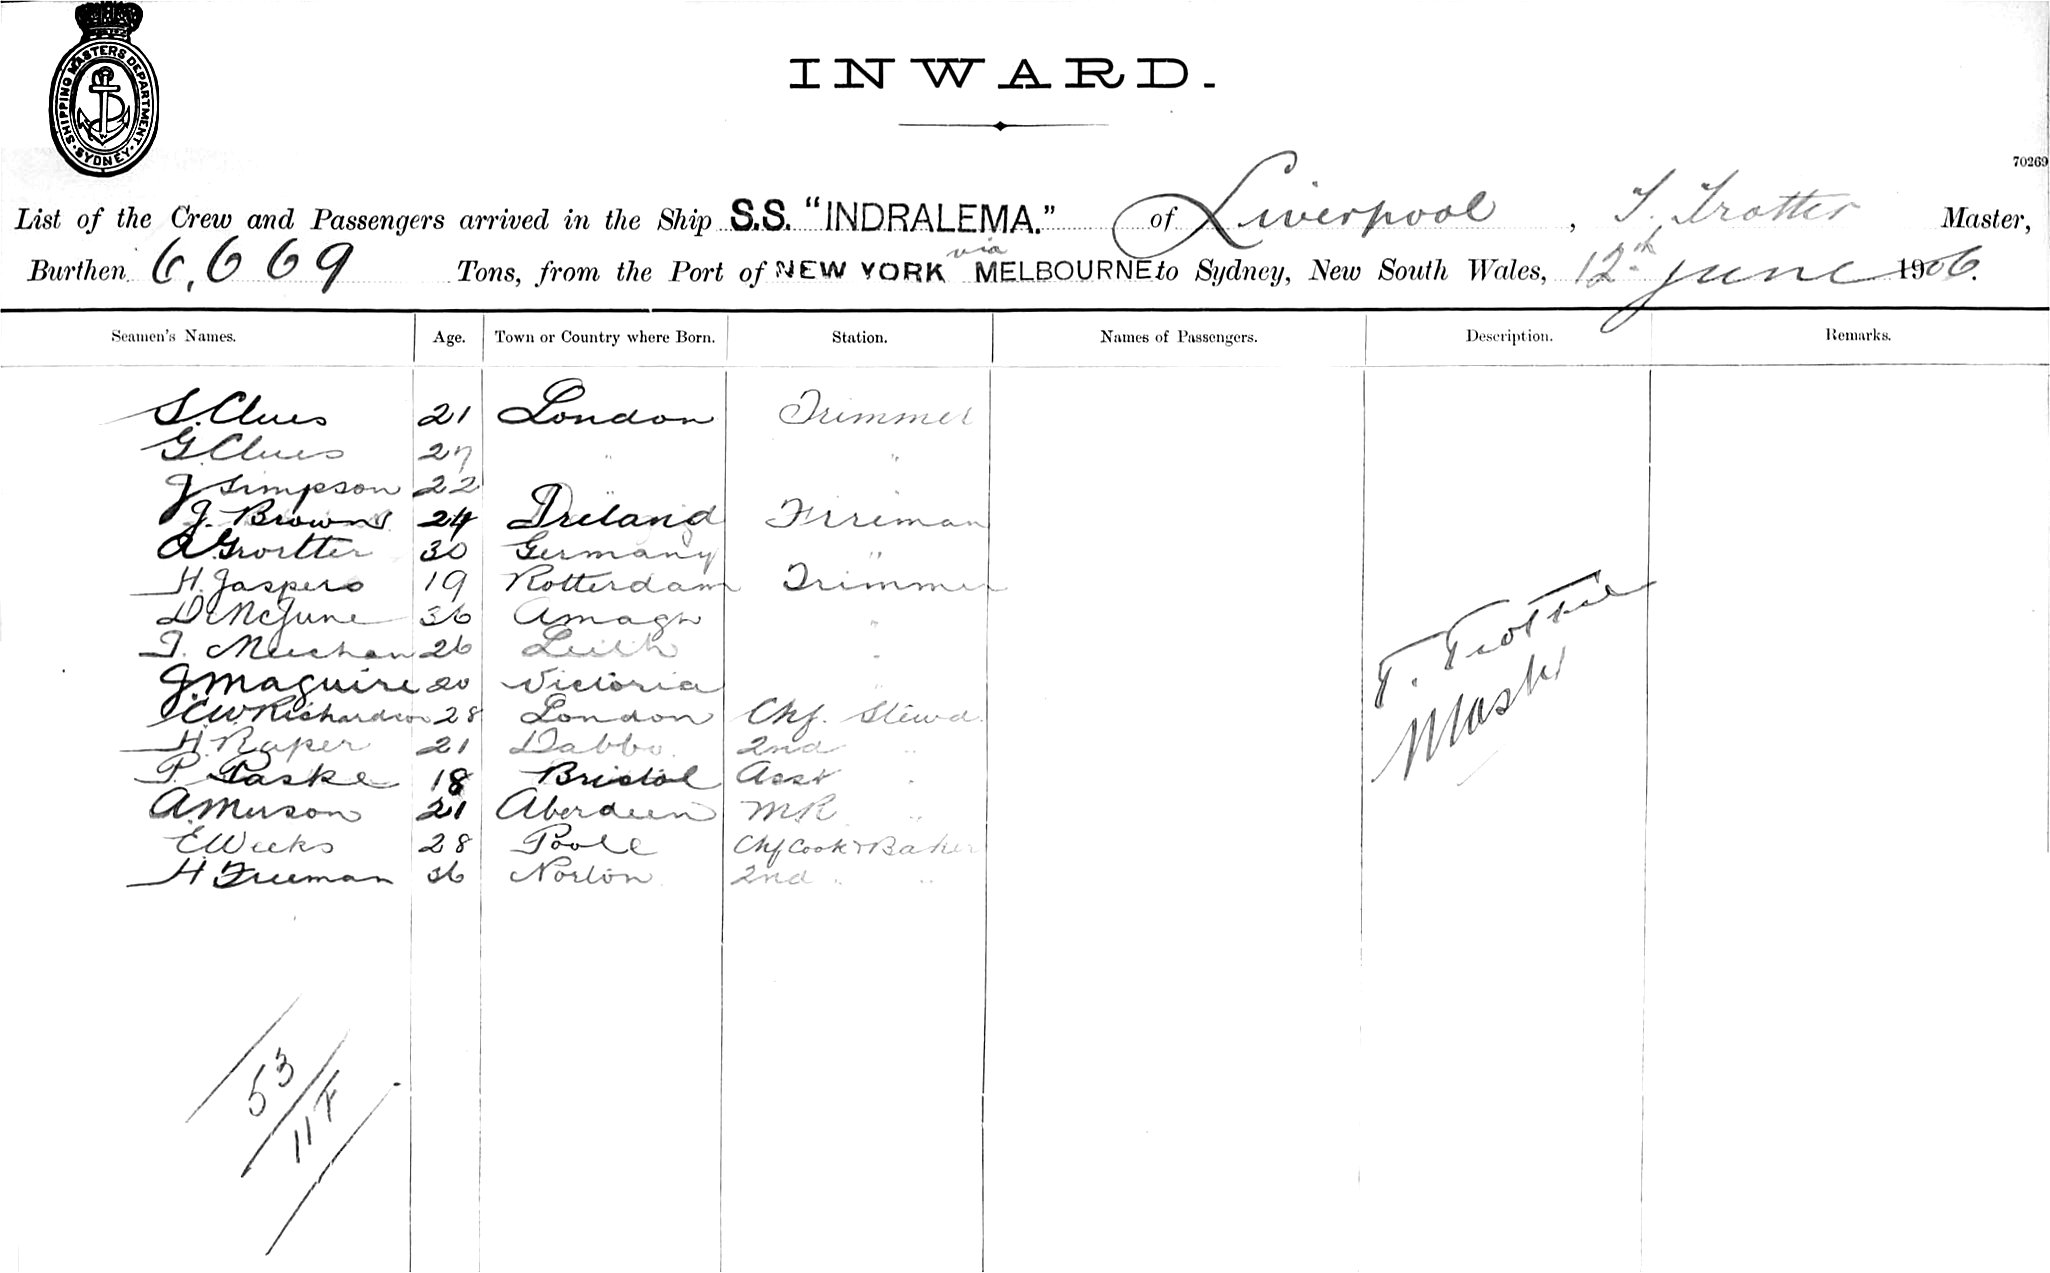 SHIPPING MASTERS DEPARTMENT · SYDNEY ·
INWARD.
70269
List of the Crew and Passengers arrived in the Ship S.S. "INDRALEMA." of Liverpool, T. Trotter Master,
Burthen 6,669 Tons, from the Port of NEW YORK via MELBOURNE to Sydney, New South Wales, 12th June 1906.
Seamen's Names. Age. Town or Country where Born. Station. Names of Passengers. Description. Remarks.
S. Clues 21 London Trimmer
G. Clues 27 " "
J Simpson 22
J. Brown 24 Ireland Fireman
30 Germany "
H. Jaspers 19 Rotterdam Trimmer
D. McJune 36 Amagh "
T. Meechan 26 Leith "
J. Maguire 20 Victoria "
C.W. Richardson 28 London Chf. Stewd.
H. Raper 21 Dabbo 2nd "
P. Paske 18 Bristol Asst "
A. Merson 21 Aberdeen M R "
E Weeks 28 Poole Chf Cook & Baker
H Freeman 36 Norton 2nd " "
T. Trotter
Master
53
11 F